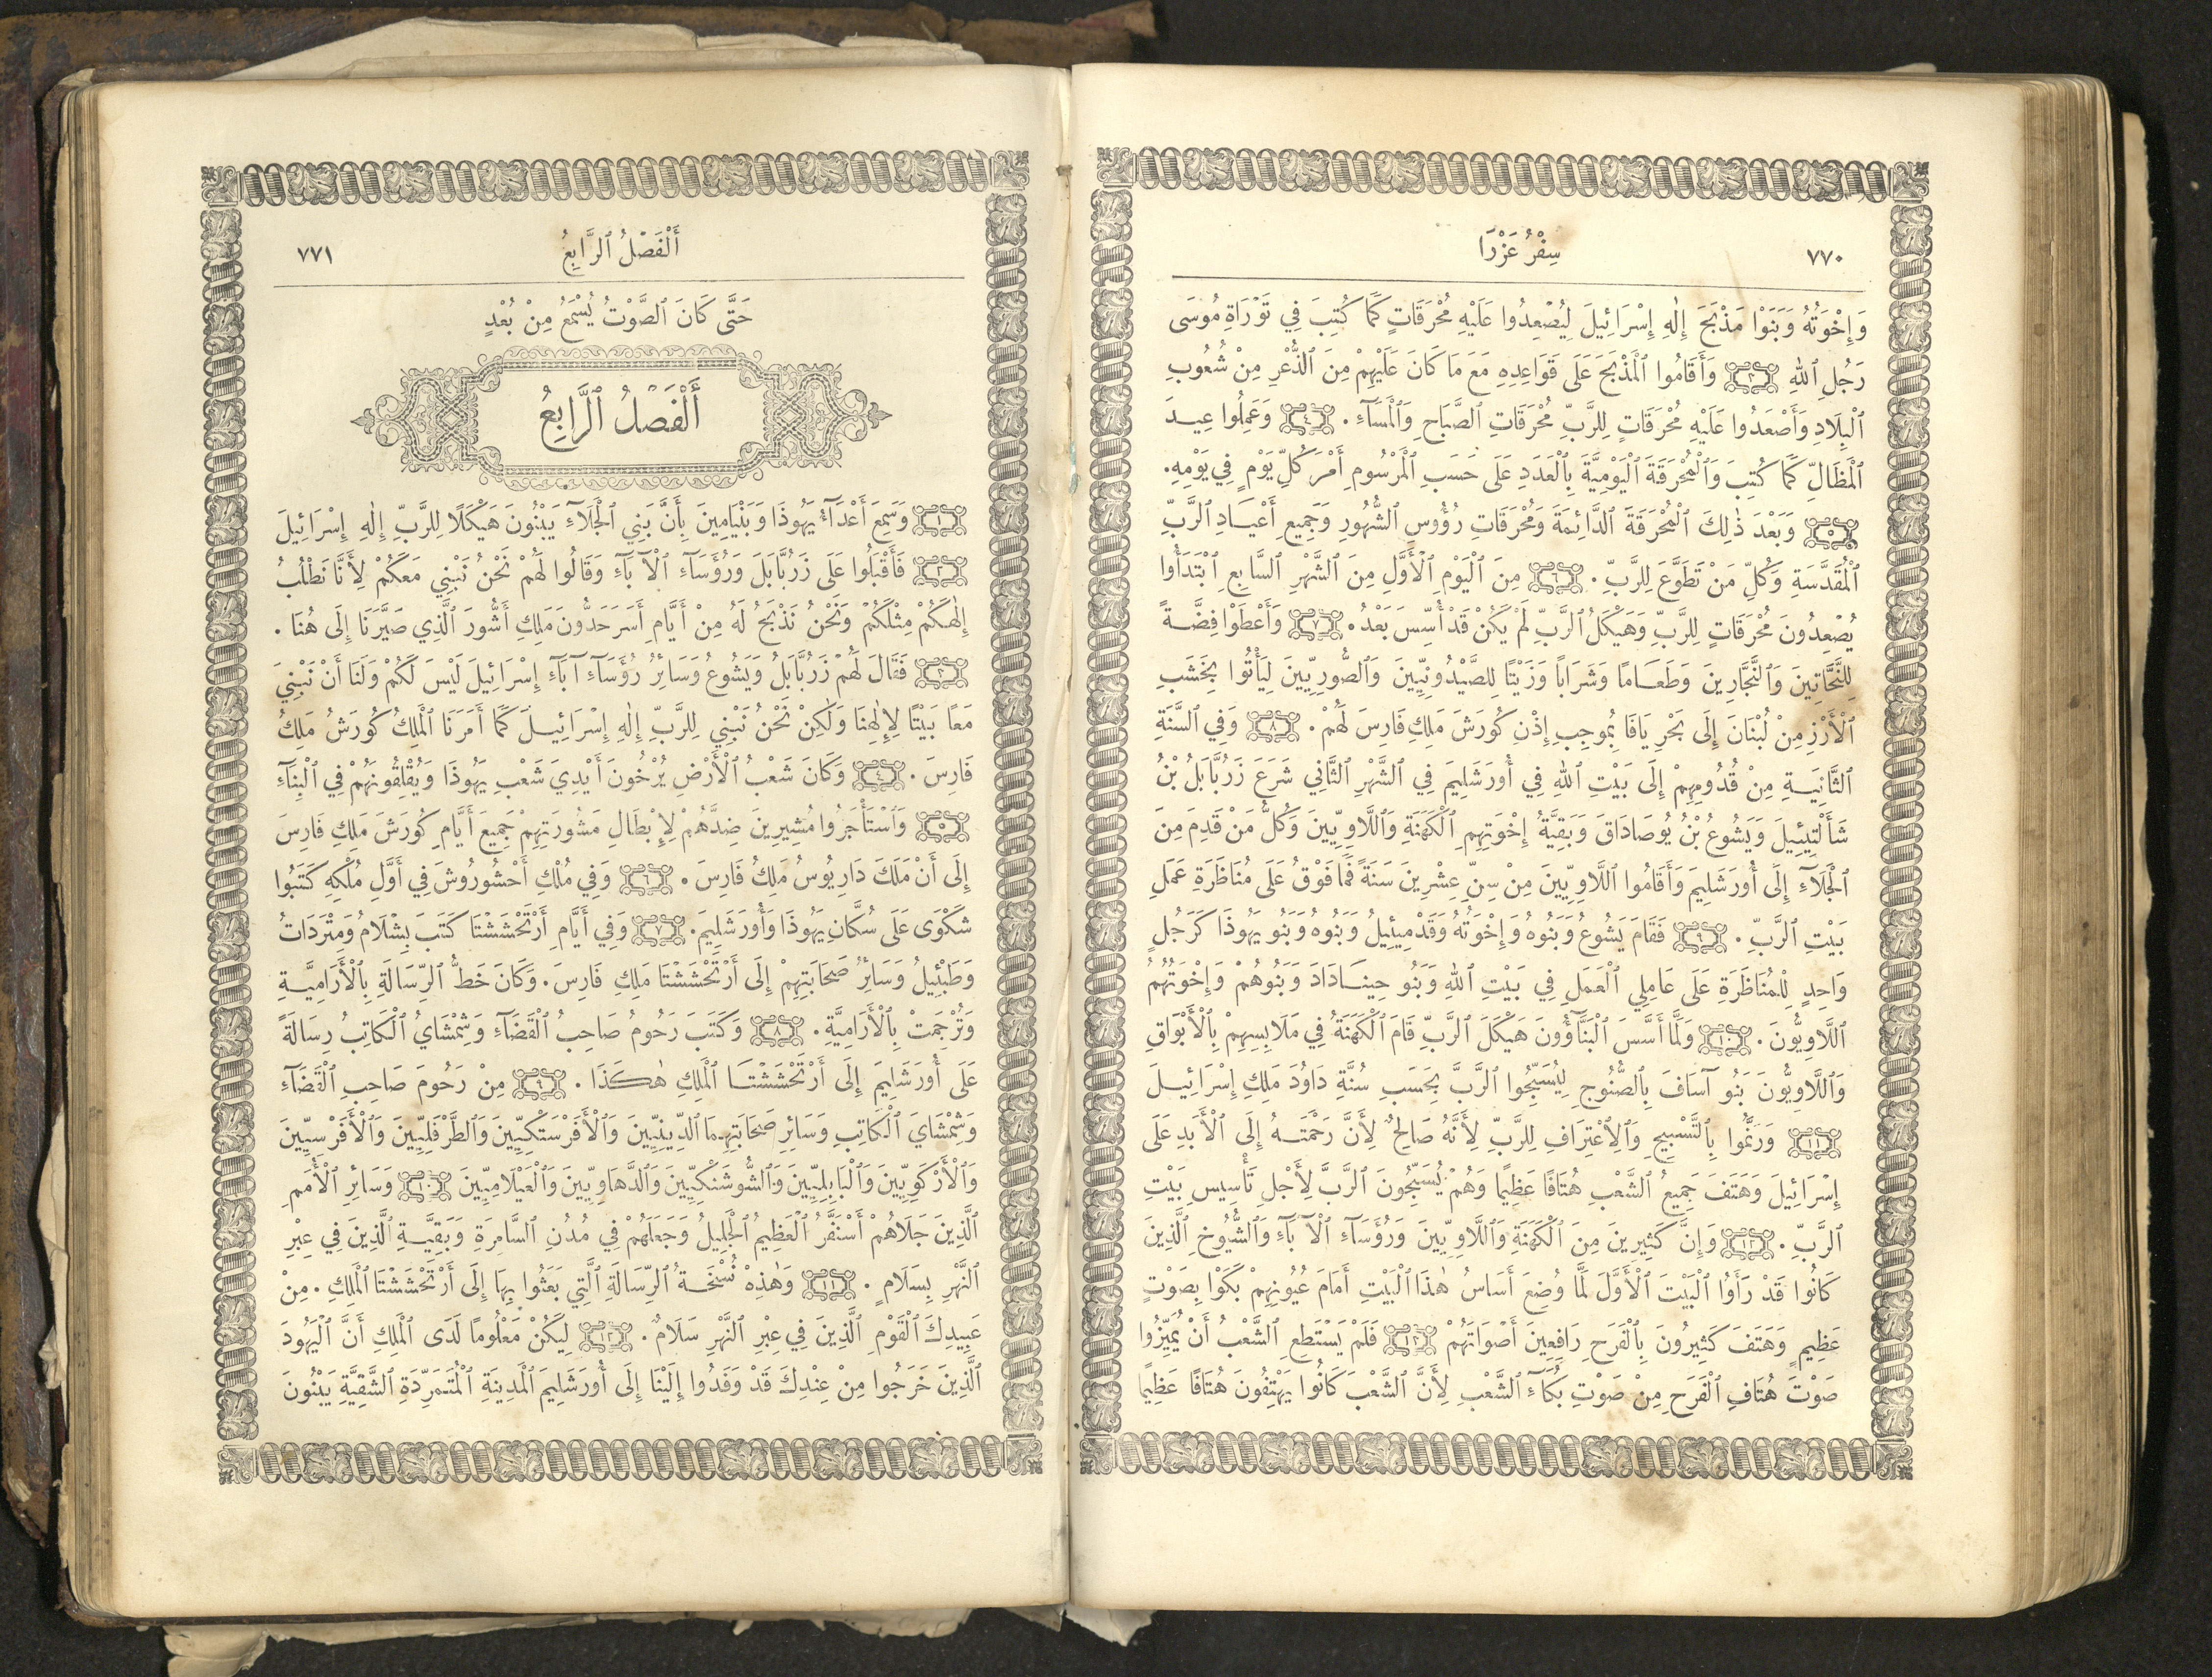 ٧٧٠
سِفْرُ عَزْرَا
وَإِخْوَتُهُ وَبَنَوْا مَذْبَحَ إِلٰهِ إِسْرَائِيلَ لِيُصْعِدُوا عَلَيْهِ مُحْرَقَاتٍ كَمَا كُتِبَ فِي تَوْرَاةِ مُوسَى
رَجُلِ ٱللهِ ٣ وَأَقَامُوا ٱلْمَذْبَحَ عَلَى قَوَاعِدِهِ مَعَ مَا كَانَ عَلَيْهِمْ مِنَ ٱلذُّعْرِ مِنْ شُعُوبِ
ٱلْبِلَادِ وَأَصْعَدُوا عَلَيْهِ مُحْرَقَاتٍ لِلرَّبِّ مُحْرَقَاتِ ٱلصَّبَاحِ وَٱلْمَسَآءِ . ٤ وَعَمِلُوا عِيدَ
ٱلْمَظَالِّ كَمَا كُتِبَ وَٱلْمُحْرَقَةَ ٱلْيَوْمِيَّةَ بِٱلْعَدَدِ عَلَى حَسَبِ ٱلْمَرْسُومِ أَمْرَ كُلِّ يَوْمٍ فِي يَوْمِهِ.
٥ وَبَعْدَ ذٰلِكَ ٱلْمُحْرَقَةَ ٱلدَّائِمَةَ وَمُحْرَقَاتِ رُؤُوسِ ٱلشُّهُورِ وَجَمِيعِ أَعْيَادِ ٱلرَّبِّ
ٱلْمُقَدَّسَةِ وَكُلِّ مَنْ تَطَوَّعَ لِلرَّبِّ . ٦ مِنَ ٱلْيَوْمِ ٱلْأَوَّلِ مِنَ ٱلشَّهْرِ ٱلسَّابِعِ ٱبْتَدَأُوا
يُصْعِدُونَ مُحْرَقَاتٍ لِلرَّبِّ وَهَيْكَلُ ٱلرَّبِّ لَمْ يَكُنْ قَدْ أُسِّسَ بَعْدُ . ٧ وَأَعْطَوْا فِضَّةً
لِلنَّحَّاتِينَ وَٱلنَّجَّارِينَ وَطَعَامًا وَشَرَابًا وَزَيْتًا لِلصَّيْدُونِيِّينَ وَٱلصُّورِيِّينَ لِيَأْتُوا بِخَشَبِ
ٱلْأَرْزِ مِنْ لُبْنَانَ إِلَى بَحْرِ يَافَا بِمُوجِبِ إِذْنِ كُورَشَ مَلِكِ فَارِسَ لَهُمْ . ٨ وَفِي ٱلسَّنَةِ
ٱلثَّانِيَةِ مِنْ قُدُومِهِمْ إِلَى بَيْتِ ٱللهِ فِي أُورَشَلِيمَ فِي ٱلشَّهْرِ ٱلثَّانِي شَرَعَ زَرُبَّابَلُ بْنُ
شَأَلْتِيئِيلَ وَيَشُوعُ بْنُ يُوصَادَاقَ وَبَقِيَّةُ إِخْوَتِهِمِ ٱلْكَهَنَةِ وَٱللَّاوِيِّينَ وَكُلُّ مَنْ قَدِمَ مِنَ
ٱلْجَلَاءِ إِلَى أُورَشَلِيمَ وَأَقَامُوا ٱللَّاوِيِّينَ مِنْ سِنِّ عِشْرِينَ سَنَةً فَمَا فَوْقُ عَلَى مُنَاظَرَةِ عَمَلِ
بَيْتِ ٱلرَّبِّ . ٩ فَقَامَ يَشُوعُ وَبَنُوهُ وَإِخْوَتُهُ وَقَدْمِيئِيلُ وَبَنُوهُ وَبَنُو يَهُوذَا كَرَجُلٍ
وَاحِدٍ لِلْمُنَاظَرَةِ عَلَى عَامِلِي ٱلْعَمَلِ فِي بَيْتِ ٱللهِ وَبَنُو حِينَادَادَ وَبَنُوهُمْ وَإِخْوَتُهُمُ
ٱللَّاوِيُّونَ . ١٠ وَلَمَّا أَسَّسَ ٱلْبَنَّآؤُونَ هَيْكَلَ ٱلرَّبِّ قَامَ ٱلْكَهَنَةُ فِي مَلَابِسِهِمْ بِٱلْأَبْوَاقِ
وَٱللَّاوِيُّونَ بَنُو آسَافَ بِٱلصُّنُوجِ لِيُسَبِّحُوا ٱلرَّبَّ بِحَسَبِ سُنَّةِ دَاوُدَ مَلِكِ إِسْرَائِيلَ
١١ وَرَنَّمُوا بِٱلتَّسْبِيحِ وَٱلِٱعْتِرَافِ لِلرَّبِّ لِأَنَّهُ صَالِحٌ لِأَنَّ رَحْمَتَهُ إِلَى ٱلْأَبَدِ عَلَى
إِسْرَائِيلَ وَهَتَفَ جَمِيعُ ٱلشَّعْبِ هُتَافًا عَظِيمًا وَهُمْ يُسَبِّحُونَ ٱلرَّبَّ لِأَجْلِ تَأْسِيسِ بَيْتِ
ٱلرَّبِّ . ١٢ وَإِنَّ كَثِيرِينَ مِنَ ٱلْكَهَنَةِ وَٱللَّاوِيِّينَ وَرُؤَسَآءِ ٱلْآبَآءِ وَٱلشُّيُوخِ ٱلَّذِينَ
كَانُوا قَدْ رَأَوُا ٱلْبَيْتَ ٱلْأَوَّلَ لَمَّا وُضِعَ أَسَاسُ هٰذَا ٱلْبَيْتِ أَمَامَ عُيُونِهِمْ بَكَوْا بِصَوْتٍ
عَظِيمٍ وَهَتَفَ كَثِيرُونَ بِٱلْفَرَحِ رَافِعِينَ أَصْوَاتَهُمْ ١٣ فَلَمْ يَسْتَطِعِ ٱلشَّعْبُ أَنْ يُمَيِّزُوا
صَوْتَ هُتَافِ ٱلْفَرَحِ مِنْ صَوْتِ بُكَآءِ ٱلشَّعْبِ لِأَنَّ ٱلشَّعْبَ كَانُوا يَهْتِفُونَ هُتَافًا عَظِيمًا
أَلْفَصْلُ ٱلرَّابِعُ
٧٧١
حَتَّى كَانَ ٱلصَّوْتُ يُسْمَعُ مِنْ بُعْدٍ
أَلْفَصْلُ ٱلرَّابِعُ
١ وَسَمِعَ أَعْدَآءُ يَهُوذَا وَبَنْيَامِينَ بِأَنَّ بَنِي ٱلْجَلَآءِ يَبْنُونَ هَيْكَلًا لِلرَّبِّ إِلٰهِ إِسْرَائِيلَ
٢ فَأَقْبَلُوا عَلَى زَرُبَّابَلَ وَرُؤَسَآءِ ٱلْآبَآءِ وَقَالُوا لَهُمْ نَحْنُ نَبْنِي مَعَكُمْ لِأَنَّا نَطْلُبُ
إِلٰهَكُمْ مِثْلَكُمْ وَنَحْنُ نَذْبَحُ لَهُ مِنْ أَيَّامِ أَسَرَحَدُّونَ مَلِكِ أَشُّورَ ٱلَّذِي صَيَّرَنَا إِلَى هُنَا .
٣ فَقَالَ لَهُمْ زَرُبَّابَلُ وَيَشُوعُ وَسَائِرُ رُؤَسَآءِ آبَآءِ إِسْرَائِيلَ لَيْسَ لَكُمْ وَلَنَا أَنْ نَبْنِيَ
مَعًا بَيْتًا لِإِلٰهِنَا وَلٰكِنْ نَحْنُ نَبْنِي لِلرَّبِّ إِلٰهِ إِسْرَائِيلَ كَمَا أَمَرَنَا ٱلْمَلِكُ كُورَشُ مَلِكُ
فَارِسَ . ٤ وَكَانَ شَعْبُ ٱلْأَرْضِ يُرْخُونَ أَيْدِيَ شَعْبِ يَهُوذَا وَيُقْلِقُونَهُمْ فِي ٱلْبِنَآءِ
٥ وَٱسْتَأْجَرُوا مُشِيرِينَ ضِدَّهُمْ لِإِبْطَالِ مَشُورَتِهِمْ جَمِيعَ أَيَّامِ كُورَشَ مَلِكِ فَارِسَ
إِلَى أَنْ مَلَكَ دَارِيُوسُ مَلِكُ فَارِسَ . ٦ وَفِي مُلْكِ أَحْشُورُوشَ فِي أَوَّلِ مُلْكِهِ كَتَبُوا
شَكْوَى عَلَى سُكَّانِ يَهُوذَا وَأُورَشَلِيمَ . ٧ وَفِي أَيَّامِ أَرْتَحْشَشْتَا كَتَبَ بِشْلَامُ وَمِتْرَدَاتُ
وَطَبْئِيلُ وَسَائِرُ صَحَابَتِهِمْ إِلَى أَرْتَحْشَشْتَا مَلِكِ فَارِسَ . وَكَانَ خَطُّ ٱلرِّسَالَةِ بِٱلْأَرَامِيَّةِ
وَتُرْجِمَتْ بِٱلْأَرَامِيَّةِ . ٨ وَكَتَبَ رَحُومُ صَاحِبُ ٱلْقَضَآءِ وَشِمْشَايُ ٱلْكَاتِبُ رِسَالَةً
عَلَى أُورَشَلِيمَ إِلَى أَرْتَحْشَشْتَا ٱلْمَلِكِ هٰكَذَا . ٩ مِنْ رَحُومَ صَاحِبِ ٱلْقَضَآءِ
وَشِمْشَايَ ٱلْكَاتِبِ وَسَائِرِ صَحَابَتِهِمَا ٱلدِّينِيِّينَ وَٱلْأَفَرْسَتْكِيِّينَ وَٱلطَّرْفَلِيِّينَ وَٱلْأَفَرْسِيِّينَ
وَٱلْأَرْكَوِيِّينَ وَٱلْبَابِلِيِّينَ وَٱلشُّوشَنْكِيِّينَ وَٱلدَّهَاوِيِّينَ وَٱلْعَيْلَامِيِّينَ ١٠ وَسَائِرِ ٱلْأُمَمِ
ٱلَّذِينَ جَلَاهُمْ أَسْنَفَّرُ ٱلْعَظِيمُ ٱلْجَلِيلُ وَجَعَلَهُمْ فِي مُدُنِ ٱلسَّامِرَةِ وَبَقِيَّةِ ٱلَّذِينَ فِي عِبْرِ
ٱلنَّهْرِ بِسَلَامٍ . ١١ وَهٰذِهْ نُسْخَةُ ٱلرِّسَالَةِ ٱلَّتِي بَعَثُوا بِهَا إِلَى أَرْتَحْشَشْتَا ٱلْمَلِكِ . مِنْ
عَبِيدِكَ ٱلْقَوْمِ ٱلَّذِينَ فِي عِبْرِ ٱلنَّهْرِ سَلَامٌ . ١٢ لِيَكُنْ مَعْلُومًا لَدَى ٱلْمَلِكِ أَنَّ ٱلْيَهُودَ
ٱلَّذِينَ خَرَجُوا مِنْ عِنْدِكَ قَدْ وَفَدُوا إِلَيْنَا إِلَى أُورَشَلِيمَ ٱلْمَدِينَةِ ٱلْمُتَمَرِّدَةِ ٱلشَّقِيَّةِ يَبْنُونَ